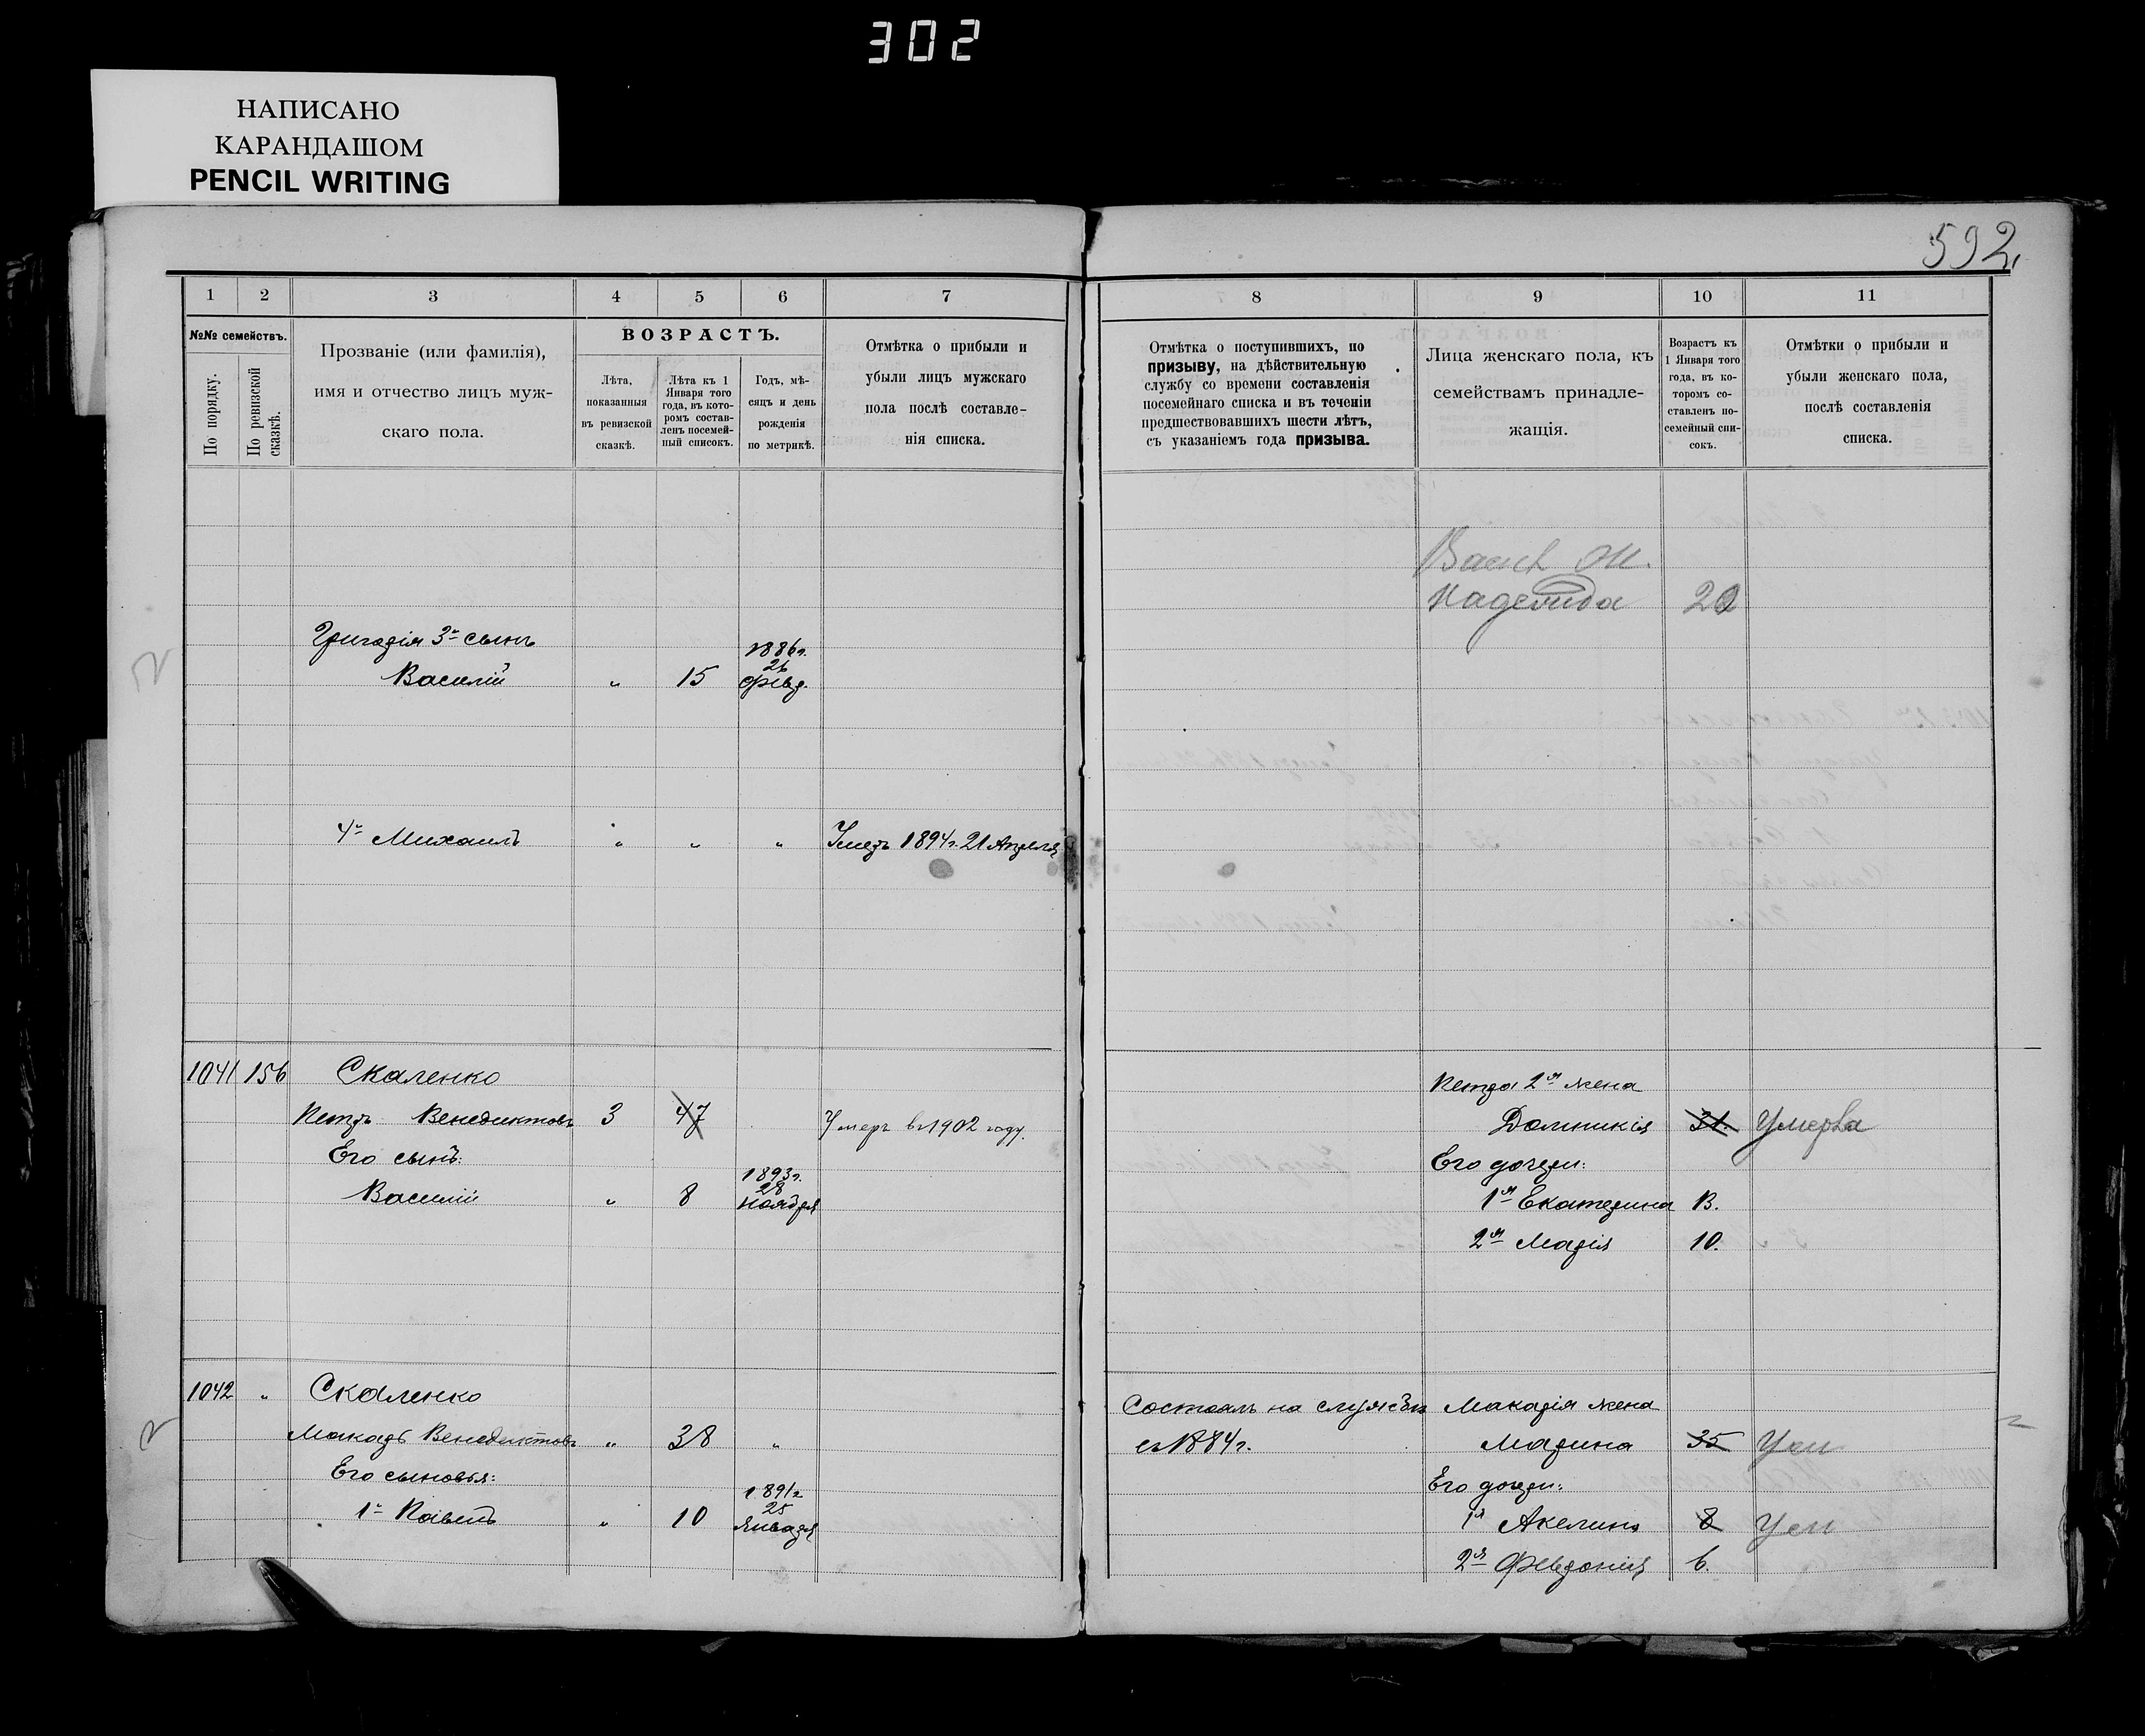 302
НАПИСАНО
КАРАНДАШОМ
PENCIL WRITING
592
1 2 3 4 5 6 7
№№ семействъ.
По порядку.
По ревизской сказкѣ.
Прозваніе (или фамилія),
имя и отчество лицъ муж-
скаго пола.
ВОЗРАСТЪ.
Лѣта,
показанныя
въ ревизской
сказкѣ.
Лѣта къ 1
Января того
года, въ кото-
ромъ состав-
ленъ посемей-
ный списокъ.
Годъ, мѣ-
сяцъ и день
рожденія
по метрикѣ.
Отмѣтка о прибыли и
убыли лицъ мужскаго
пола послѣ составле-
нія списка.
Григорія 3й сынъ
1886г.
26
Василій " 15 Февр.
4й Михаилъ " " " Умеръ 1894г. 21 Апреля
1041 156 Скаленко
Петръ Венедиктовъ 3 47 Умеръ въ 1902 году.
Его сынъ:
1893г.
28
Василій " 8 ноября
1042 " Скаленко
Макаръ Венедиктовъ " 38 "
Его сыновья:
1891г
25
1й Павелъ " 10 января
8 9 10 11
Отмѣтка о поступившихъ, по
призыву, на дѣйствительную
службу со времени составленія
посемейнаго списка и въ теченіи
предшествовавшихъ шести лѣтъ,
съ указаніемъ года призыва.
Лица женскаго пола, къ
семействамъ принадле-
жащія.
Возрастъ къ
1 Января того
года, въ ко-
торомъ со-
ставленъ по-
семейный спи-
сокъ.
Отмѣтки о прибыли и
убыли женскаго пола,
послѣ составленія
списка.
Надежда 20
Петра 2я жена
Домникія 31. Умерла
Его дочери:
1я Екатерина 13.
2я Марія 10.
Состоялъ на службѣ Макарія жена
съ 1884г. Марина 35 Ум
Его дочери:
1я Акелина 8 Ум
2я Февронія 6.